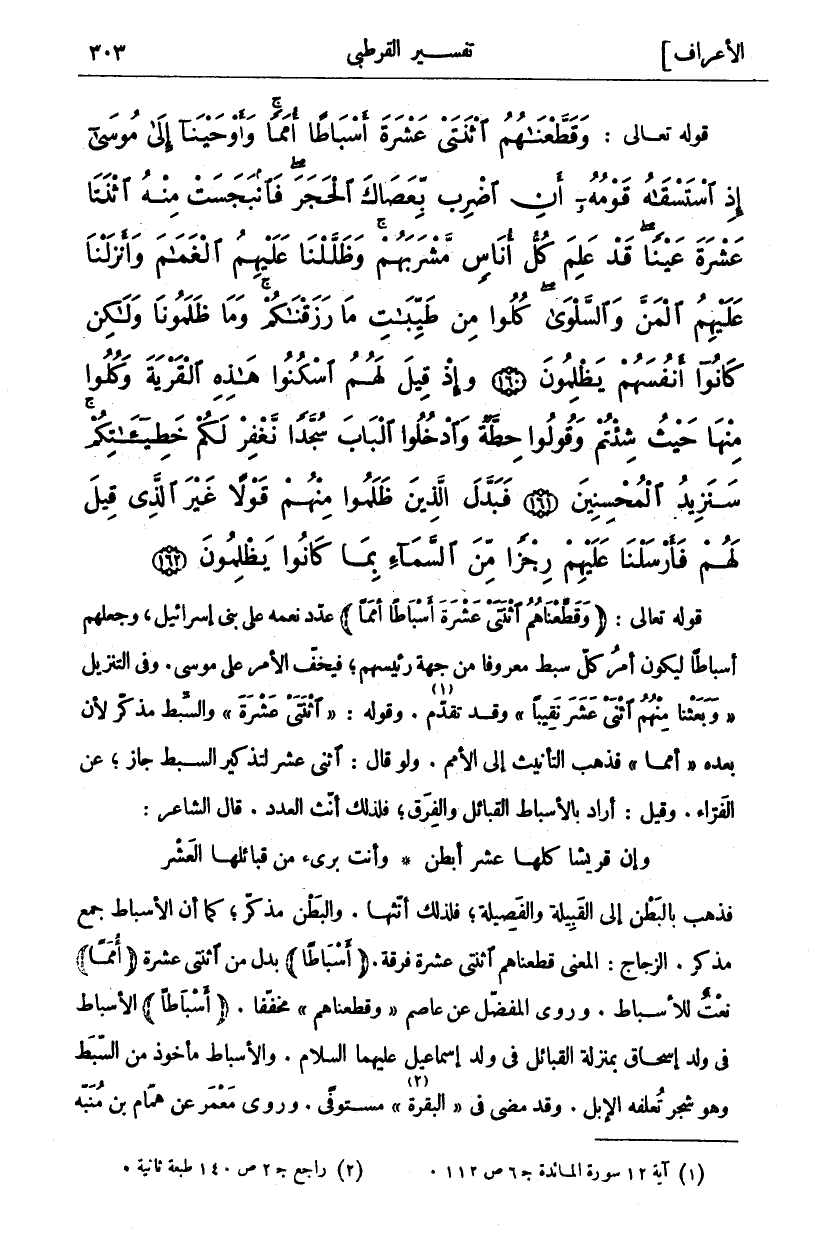 الأعراف] تفسير القرطبي ٣٠٣
قوله تعالى : وَقَطَّعْنَـٰهُمُ ٱثْنَتَىْ عَشْرَةَ أَسْبَاطًا أُمَمًا ۚ وَأَوْحَيْنَآ إِلَىٰ مُوسَىٰٓ
إِذِ ٱسْتَسْقَـٰهُ قَوْمُهُۥٓ أَنِ ٱضْرِب بِّعَصَاكَ ٱلْحَجَرَ ۖ فَٱنۢبَجَسَتْ مِنْهُ ٱثْنَتَا
عَشْرَةَ عَيْنًا ۖ قَدْ عَلِمَ كُلُّ أُنَاسٍ مَّشْرَبَهُمْ ۚ وَظَلَّلْنَا عَلَيْهِمُ ٱلْغَمَـٰمَ وَأَنزَلْنَا
عَلَيْهِمُ ٱلْمَنَّ وَٱلسَّلْوَىٰ ۖ كُلُوا مِن طَيِّبَـٰتِ مَا رَزَقْنَـٰكُمْ ۚ وَمَا ظَلَمُونَا وَلَـٰكِن
كَانُوٓا أَنفُسَهُمْ يَظْلِمُونَ ١٦٠ وَإِذْ قِيلَ لَهُمُ ٱسْكُنُوا هَـٰذِهِ ٱلْقَرْيَةَ وَكُلُوا
مِنْهَا حَيْثُ شِئْتُمْ وَقُولُوا حِطَّةٌ وَٱدْخُلُوا ٱلْبَابَ سُجَّدًا نَّغْفِرْ لَكُمْ خَطِيٓـَٔـٰتِكُمْ ۚ
سَنَزِيدُ ٱلْمُحْسِنِينَ ١٦١ فَبَدَّلَ ٱلَّذِينَ ظَلَمُوا مِنْهُمْ قَوْلًا غَيْرَ ٱلَّذِى قِيلَ
لَهُمْ فَأَرْسَلْنَا عَلَيْهِمْ رِجْزًا مِّنَ ٱلسَّمَآءِ بِمَا كَانُوا يَظْلِمُونَ ١٦٢
قوله تعالى : ﴿وَقَطَّعْنَاهُمُ ٱثْنَتَىْ عَشْرَةَ أَسْبَاطًا أُمَمًا﴾ عدّد نعمه على بنى إسرائيل، وجعلهم
أسباطا ليكون أمرُ كلّ سبط معروفا من جهة رئيسهم؛ فيخفّ الأمر على موسى. وفى التنزيل
« وَبَعَثْنَا مِنْهُمُ ٱثْنَىْ عَشَرَ نَقِيبًا » وقد تقدّم (١) . وقوله : « ٱثْنَتَىْ عَشْرَةَ » والسِّبط مذكر لأن
بعده « أمما » فذهب التأنيث إلى الأمم . ولو قال : ٱثنى عشر لتذكير السبط جاز ؛ عن
الفرّاء . وقيل : أراد بالأسباط القبائل والفِرَق؛ فلذلك أنّث العدد . قال الشاعر :
وإن قريشا كلها عشر أبطن * وأنت برىء من قبائلها العَشْر
فذهب بالبَطْن إلى القَبِيلة والفَصِيلة؛ فلذلك أنّثها . والبَطْن مذكّر؛ كما أن الأسباط جمع
مذكر . الزجاج : المعنى قطعناهم ٱثنتى عشرة فرقة. ﴿أَسْبَاطًا﴾ بدل من ٱثنتى عشرة ﴿أُمَمًا﴾
نعتٌ للأسباط . وروى المفضّل عن عاصم « وقطعناهم » مخففا . ﴿أَسْبَاطًا﴾ الأسباط
فى ولد إسحاق بمنزلة القبائل فى ولد إسماعيل عليهما السلام . والأسباط مأخوذ من السَّبَط
وهو شجر تُعلفه الإبل . وقد مضى فى « البقرة » (٢) مستوفًى . وروى مَعْمَر عن همّام بن مُنَبّه
(١) آية ١٢ سورة المائدة جـ ٦ ص ١١٢ . (٢) راجع جـ ٢ ص ١٤٠ طبعة ثانية .